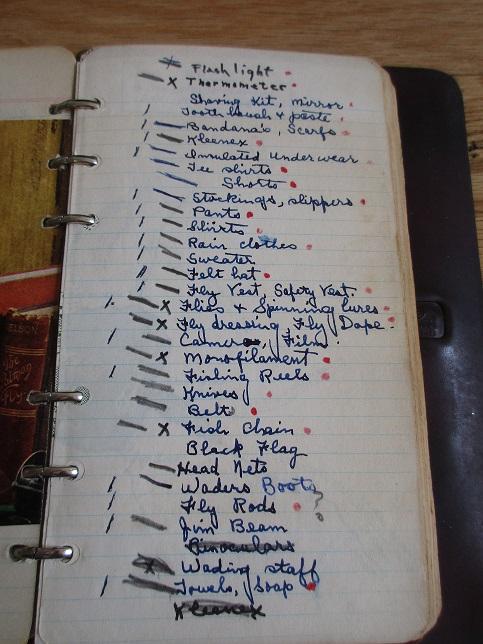 Flashlight
x Thermometer
Shaving Kit, mirror
Tooth brush & paste
Bandana's, Scarfs
Kleenex
Insulated Underwear
Tee shirts
Shorts
Stockings, slippers
Pants
Shirts
Rain clothes
Sweater
Felt hat
Fly Vest, Safety Vest.
x Flies & Spinning lures
x Fly dressing Fly Dope
Camera, Film
x Monofilament
Fishing Reels
Knives
Belt
x Fish Chain
Black Flag
Head Nets
Waders Boots?
Fly Rods
Jim Beam
Binoculars
x Wading staff
Towels, Soap
Kleenex
ELSON